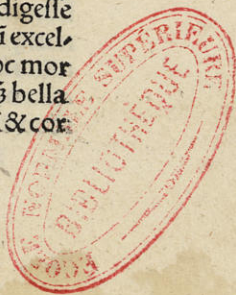 digesse
ī excel-
oc mor
bella
& cor
ÉCOLE NORMALE SUPÉRIEURE
BIBLIOTHÈQUE